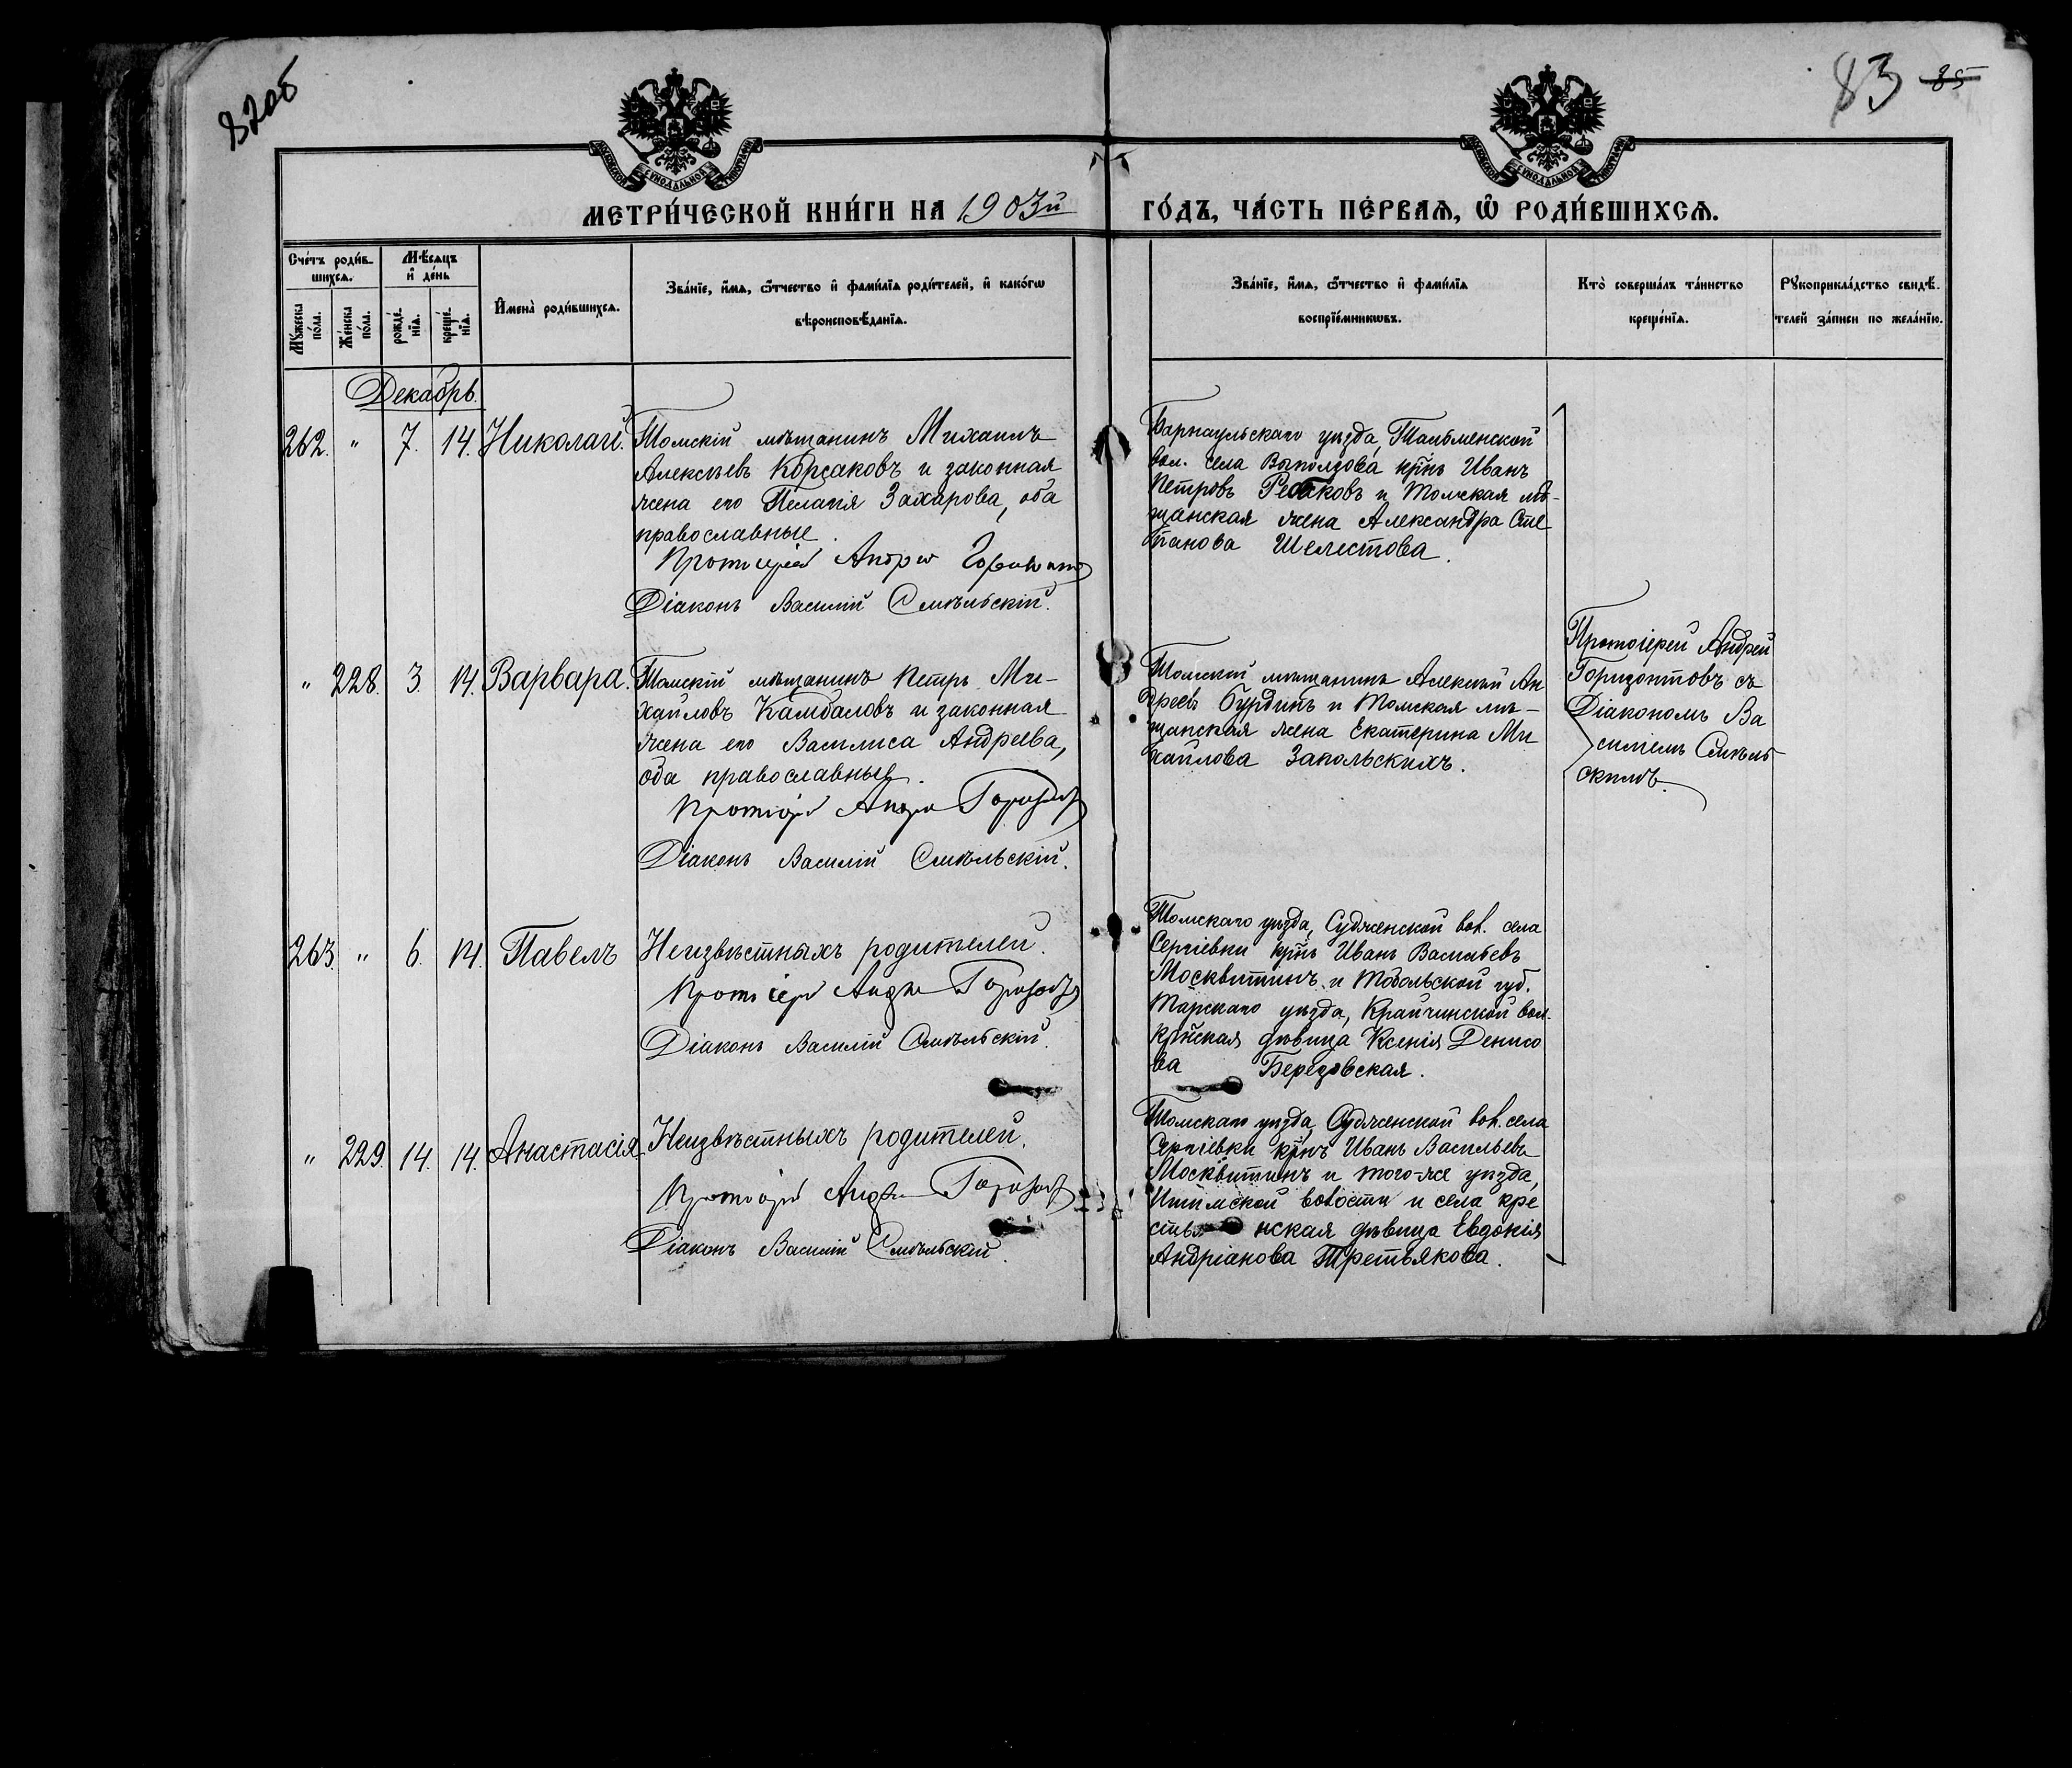 82об
83 85
МОСКОВСКОЙ СѴНОДАЛЬНОЙ ТИПОГРАФІИ
МОСКОВСКОЙ СѴНОДАЛЬНОЙ ТИПОГРАФІИ
МЕТРИ́ЧЕСКОЙ КНИ́ГИ НА 1903й
ГО́ДЪ, ЧА́СТЬ ПЕ́РВАѦ, Ѽ РОДИ́ВШИХСѦ.
Сче́тъ роди́в-
шихсѧ.
Мѣ́сѧцъ
и҆ де́нь
Мꙋ́жеска
по́ла.
Же́нска
по́ла.
рожде́-
нїѧ.
креще́-
нїѧ.
И҆мена̀ роди́вшихсѧ.
Зва́нїе, и҆́мѧ, ѻ҆́тчество и҆ фами́лїѧ роди́телей, и҆ како́гѡ
вѣроисповѣ́данїѧ.
Зва́нїе, и҆́мѧ, ѻ҆́тчество и҆ фами́лїѧ
воспрїе́мникѡвъ.
Кто̀ соверша́лъ та́инство
креще́нїѧ.
Рꙋкоприкла́дство свидѣ́-
телей за́писи по жела́нїю.
Декабрь.
262. " 7. 14. Николай.
Томскій мѣщанинъ Михаилъ
Алексѣевъ Корсаковъ и законная
жена его Пелагія Захарова, оба
православные.
Протоіерей Андрей Горизонтов
Діаконъ Василій Смѣльскій.
Барнаульскаго уѣзда, Тальменской
вол. села Выползова кр̃нъ Иванъ
Петровъ и Томская мѣ-
щанская жена Александра Сте
панова Шелестова.
" 228. 3. 14. Варвара.
Томскій мѣщанинъ Петръ Ми-
хайловъ Камбаловъ и законная
жена его Василиса Андреева,
оба православные.
Протоіерей Андрей Горизонтов
Діаконъ Василій Смѣльскій.
Томскій мѣщанинъ Алексѣй Ан
дреевъ Бурдинъ и Томская мѣ-
щанская жена Екатерина Ми
хайлова Запольскихъ.
Протоіерей Андрей
Горизонтовъ съ
Діакономъ Ва
силіемъ Смѣль
скимъ.
263. " 6. 14. Павелъ
Неизвѣстныхъ родителей.
Протоіерей Андрей Горизонтов
Діаконъ Василій Смѣльскій.
Томскаго уѣзда, Судженской вол. села
Сергіевки кр̃нъ Иванъ Васильевъ
Москвитинъ и Тобольской губ.
Тарскаго уѣзда, Крайчинской вол.
кр̃нская дѣвица Ксенія Денисо
ва Березовская.
" 229. 14. 14. Анастасія.
Неизвѣстныхъ родителей.
Протоіерей Андрей Горизонтов
Діаконъ Василій Смѣльскій.
Томскаго уѣзда, Судженской вол. села
Сергіевки кр̃нъ Иванъ Васильевъ
Москвитинъ и того-же уѣзда,
Ишимской волости и села кре
стья нская дѣвица Евдокія
Андріанова Третьякова.